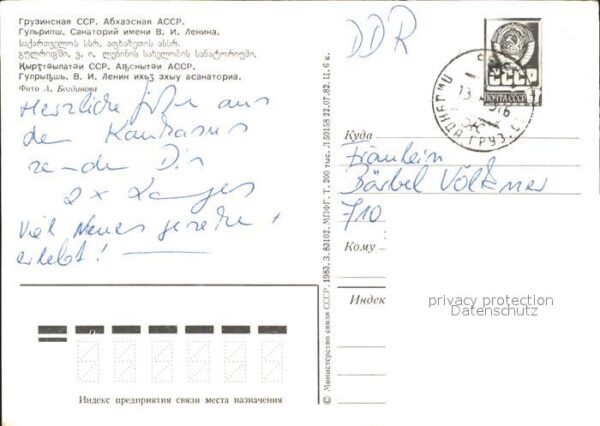 Грузинская ССР. Абхазская АССР.
Гульрипш. Санаторий имени В. И. Ленина.
საქართველოს სსრ. აფხაზეთის ასსრ.
გულრიფში. ვ. ი. ლენინის სახელობის სანატორიუმი.
Қырҭтәылатәи ССР. Аԥснытәи АССР.
Гәылрыԥшь. В. И. Ленин ихьӡ зхыу асанаториа.
Фото А. Богданова
Herzliche Grüße aus
dem Kaukasus
Dir
2 x
Viel Neues gesehen &
erlebt!
© Министерство связи СССР. 1983. З. 83102. МПФГ. Т. 200 тыс. Л 50158 22.07.82. Ц. 6 к.
DDR
СССР
ПОЧТА СССР
ГРУЗ.
Куда
Fräulein
Bärbel Völkner
710
Кому
Индекс
privacy protection
Datenschutz
Индекс предприятия связи места назначения